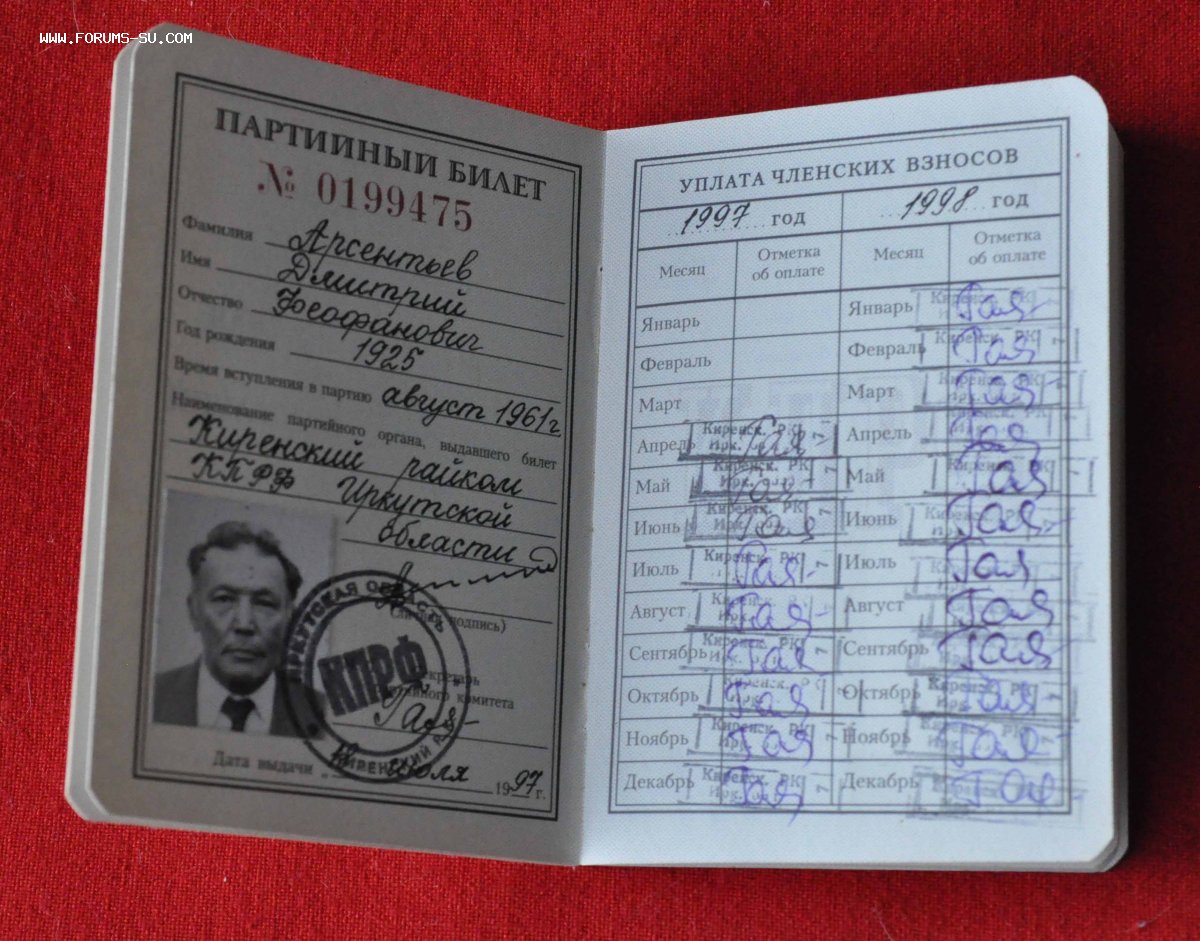 WWW.FORUMS-SU.COM
ПАРТИЙНЫЙ БИЛЕТ
№ 0199475
Фамилия Арсентьев
Имя Дмитрий
Отчество Феофанович
Год рождения 1925
Время вступления в партию август 1961г
Наименование партийного органа, выдавшего билет
Киренский райком
КПРФ Иркутской
области
(личная подпись)
ИРКУТСКАЯ ОБЛАСТЬ
КПРФ
КИРЕНСКИЙ
Секретарь
комитета
Гая
Дата выдачи июля 1997 г.
УПЛАТА ЧЛЕНСКИХ ВЗНОСОВ
1997 год 1998 год
Месяц Отметка об оплате Месяц Отметка об оплате
Январь Январь Киренск. РК Гая
Февраль Февраль Киренск. РК Гая
Март Март Киренск. РК Гая
Апрель Киренск. РК Гая Апрель Гая
Май Киренск. РК Гая Май Гая
Июнь Киренск. РК Гая Июнь Гая
Июль Киренск. РК Гая Июль Гая
Август Гая Август Гая
Сентябрь Гая Сентябрь Гая
Октябрь Гая Октябрь Киренск. РК Гая
Ноябрь Киренск. РК Гая Ноябрь Гая
Декабрь Киренск. РК Гая Декабрь Гая